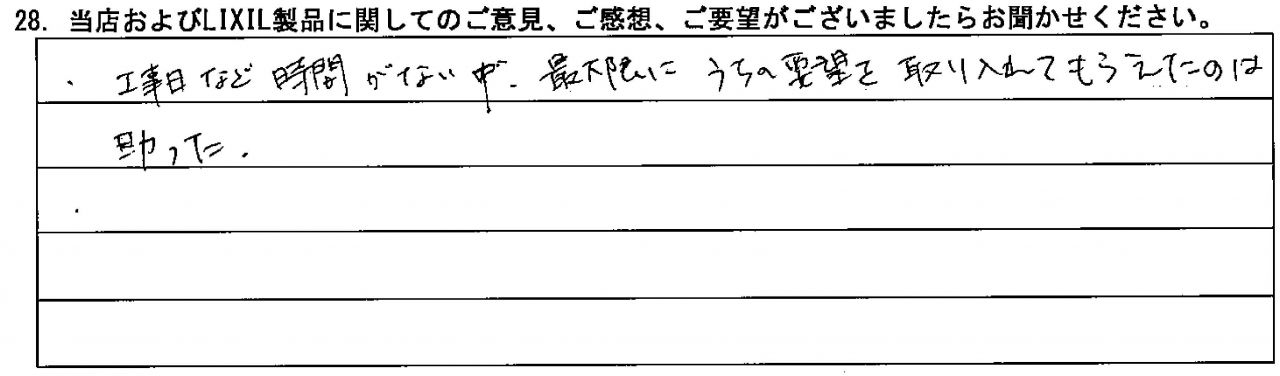 28. 当店およびLIXIL製品に関してのご意見、ご感想、ご要望がございましたらお聞かせください。
・工事日など時間がない中、最大限にうちの要望を取り入れてもらえたのは
助った.